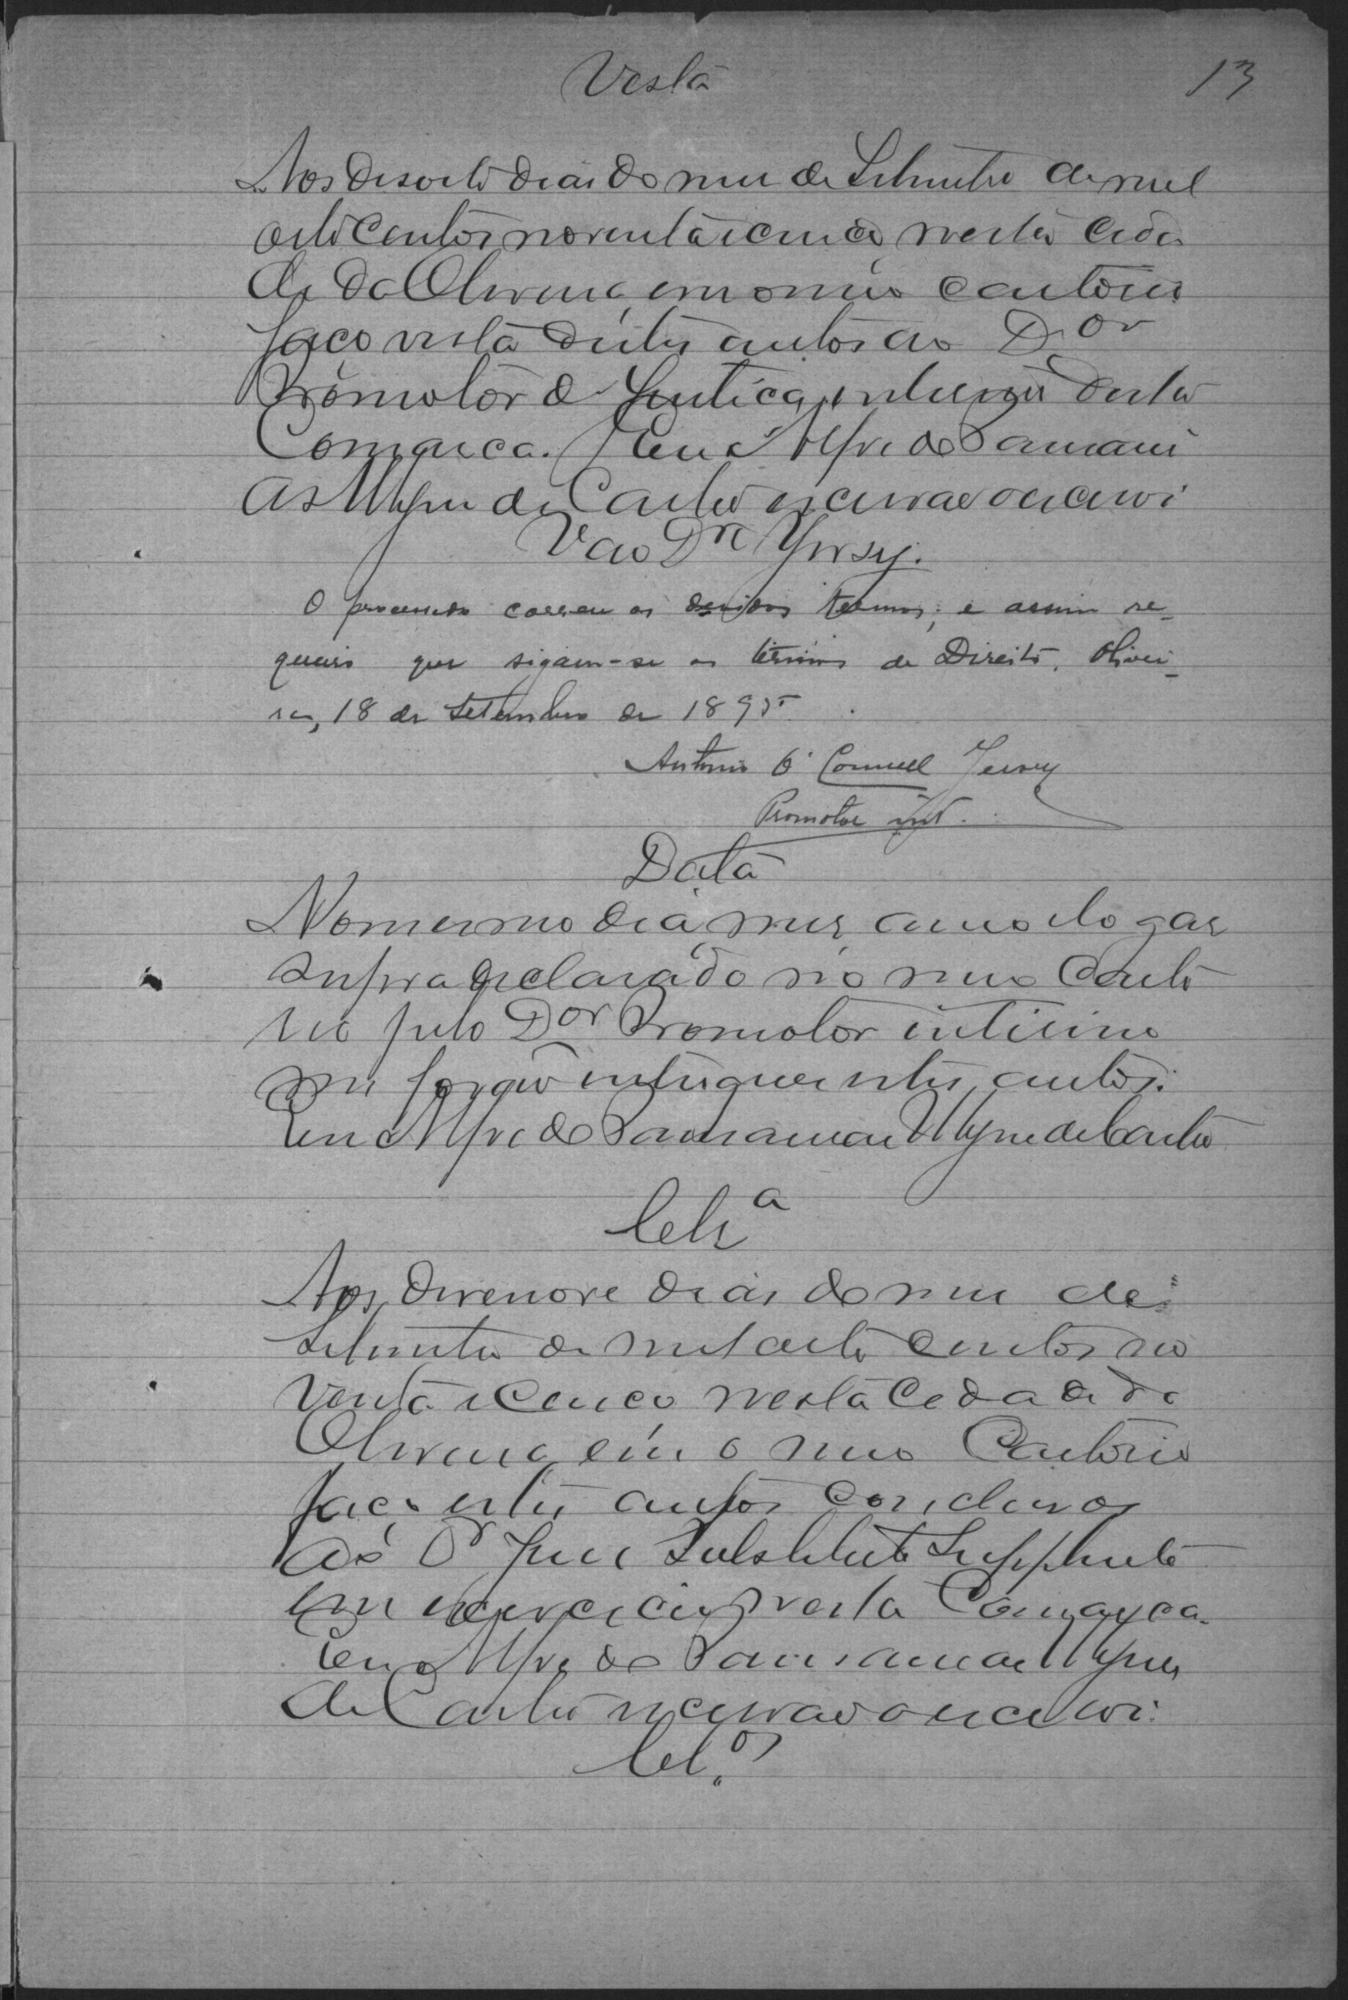 Vista
13
Aos desoito dias do mes de Setembro de mil
oito centos noventa e cinco, nesta cida
de da Oliveira, em o meu cartorio
faço vista destes autos ao Dor
Promotor de Justiça interino desta
Comarca. Eu Alfredo
de Castro escrivão o escrevi
V ao Dr Jersey.
O processado correu os devidos termos; e assim re-
queiro que sigam-se os termos de Direito. Olivei-
ra, 18 de Setembro de 1895.
Antonio O'Connell Jersey
Promotor int.
Data
No mesmo dia, mes, anno e logar
supra declarado no meu Carto
rio pelo Dor Promotor interino
me forão entregues estes autos.
Eu Alfredo de Castro
Clsa
Aos desenove dias do mes de
Setembro de mil oito centos no
venta e cinco nesta Cidade da
Oliveira em o meu Cartorio
faço estes autos conclusos
ao Dr Juis Substituto Supplente
em exercicio nesta Comarca.
Eu Alfredo
de Castro escrivão o escrevi.
Cl.os